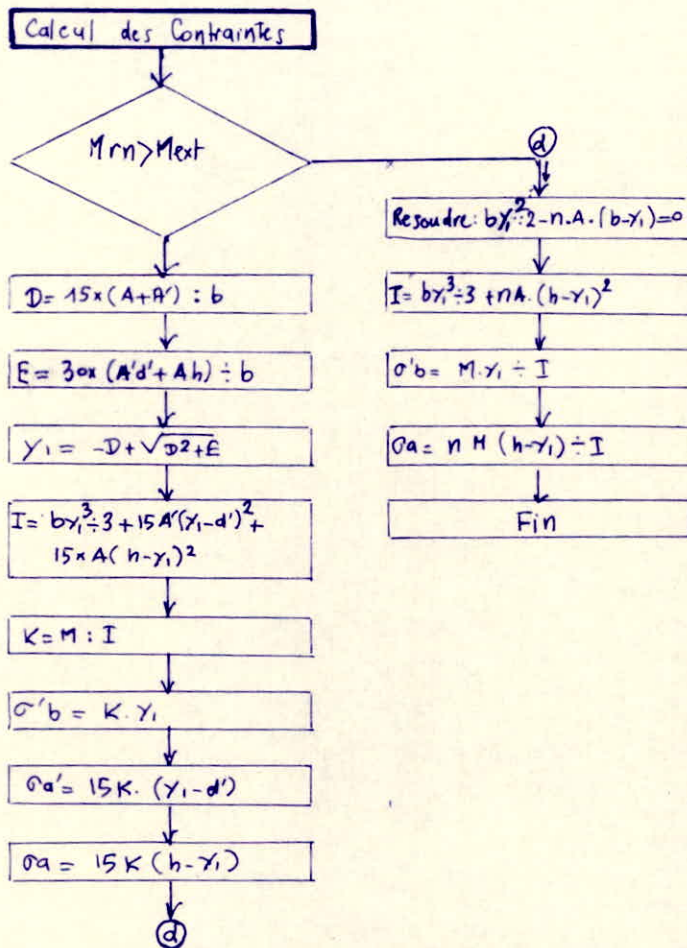 Calcul des Contraintes
Mrn>Mext
D= 15×(A+A') : b
E= 30×(A'd'+Ah) ÷ b
γ1 = -D+√D²+E
I= bγ1³÷3 + 15A'(γ1-d')²+
15×A(h-γ1)²
K=M : I
σ'b = K.γ1
σa'= 15K.(γ1-d')
σa = 15K(h-γ1)
d
d
Resoudre: bγ1²÷2-n.A.(b-γ1)=0
I= bγ1³÷3 +nA.(h-γ1)²
σ'b= M.γ1 ÷ I
σa= n M (h-γ1) ÷ I
Fin